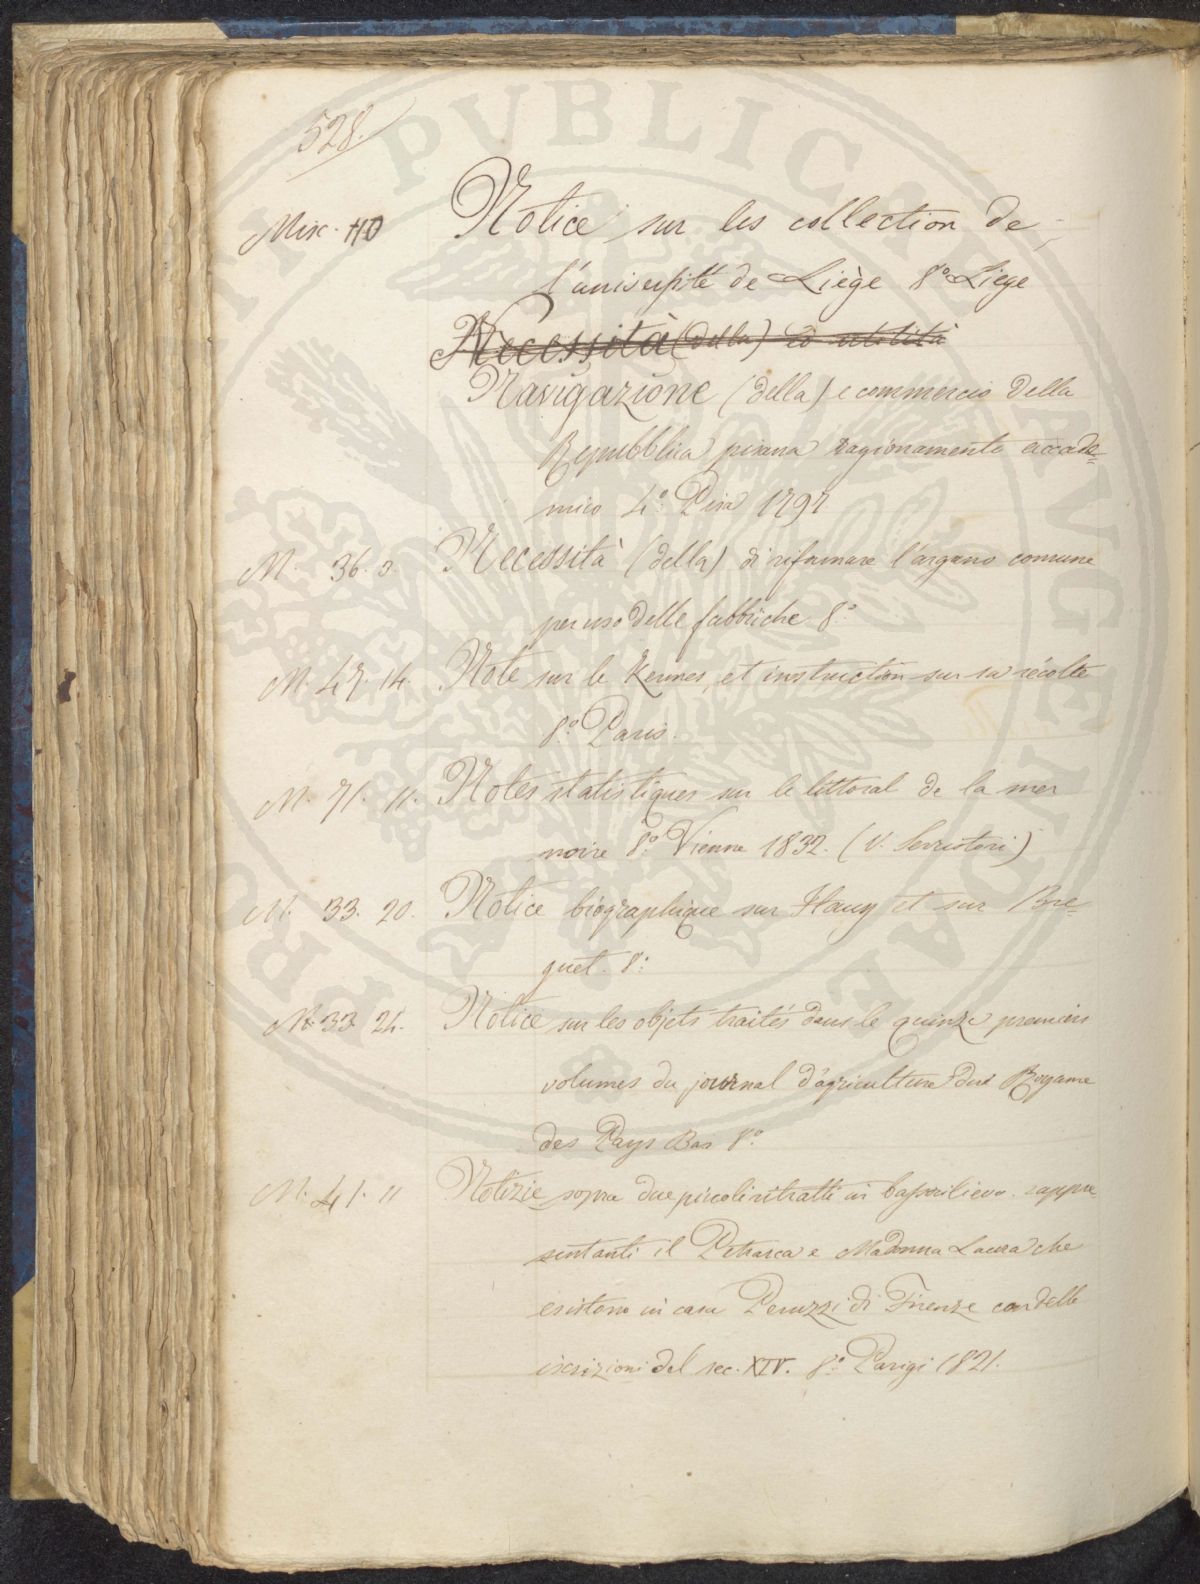 528.
Misc. HO Notice sur les collection de
l'université de Liège 8º Liege
Necessità (della) ed utilità
Navigazione (della) e commercio della
Repubblica pisana ragionamento accade=
mico 4º Pisa 1797
M. 36. 3. Necessità (della) di riformare l'argano comune
per uso delle fabbriche 8º
M. 47. 14. Note sur le Kermes, et instruction sur sa récolte
8º Paris.
M. 71. 11. Notes statistiques sur le littoral de la mer
noire 8º Vienne 1832. (V. Serristori)
M. 33. 20. Notice biographique sur Hauy et sur Bre=
guet. 8º
M. 33 24. Notice sur les objets traités dans le quinze premiers
volumes du journal d'agriculture du Royame
des Pays Bas 8º
M. 41. 11 Notizie sopra due piccoli ritratti in bassorilievo. rappre=
sentanti il Petrarca e Madonna Laura che
esistono in casa Peruzzi di Firenze con delle
iscrizioni del sec. XIV. 8º Parigi 1821.